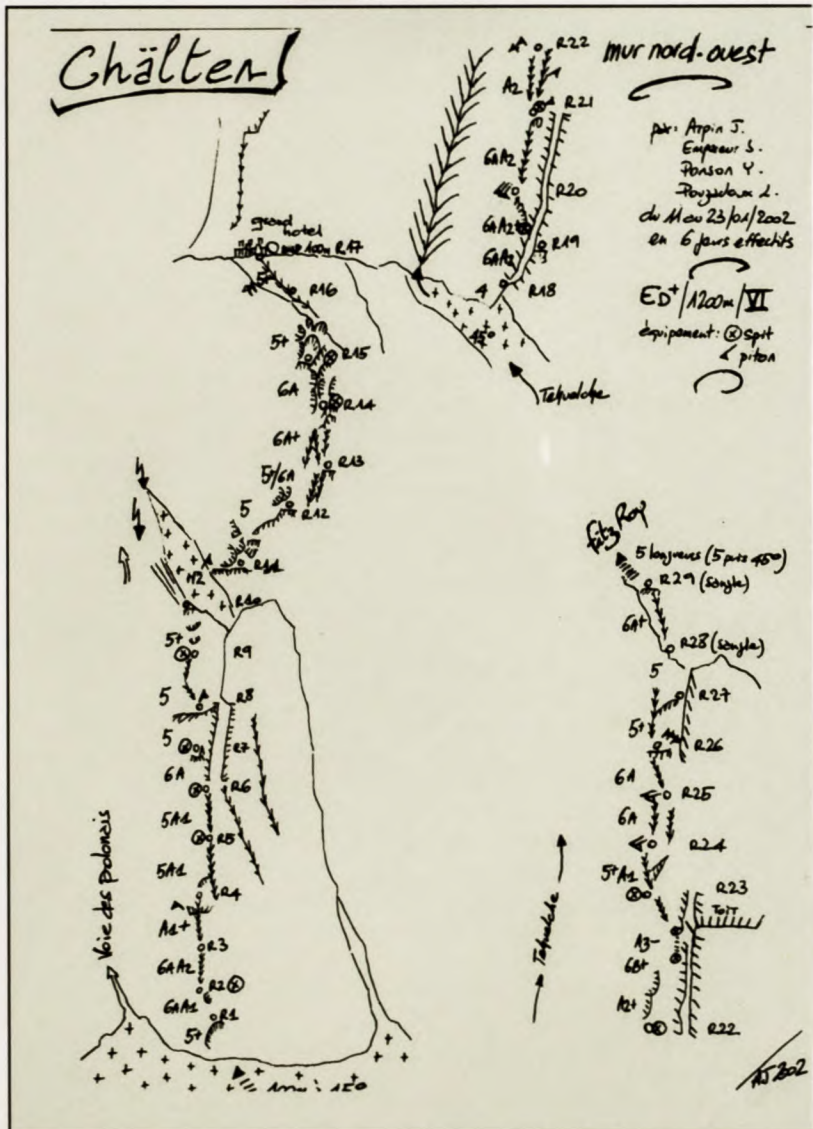 Chälten
mur nord-ouest
par: Arpin J.
Empereur S.
Ponson Y.
L.
du 11 au 23/01/2002
en 6 jours effectifs
ED+/1200m/VI
équipement: ⊗ spit
piton
R22
A2
R21
6AA2
R20
6AA2
R19
6AA2
4
R18
45°
Tehuelche
grand
hotel
100m R17
R16
5+
R15
6A
R14
6A+
R13
5+/6A
R12
5
R11
R10
5+
R9
5
R8
5
R7
6A
R6
5A1
R5
5A1
R4
A1+
R3
6AA2
R2
6AA1
R1
5+
Voie des polonais
Fitz Roy
5 longueurs (5 puis 45°)
R29 (sangle)
6A+
R28 (sangle)
5
R27
5+
R26
6A
R25
6A
R24
5+A1
R23
TOIT
A3-
6B+
A2+
R22
Tehuelche
AJ 2002